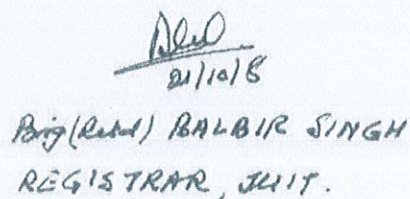 21/10/8
Brig (Retd) BALBIR SINGH
REGISTRAR, JUIT.